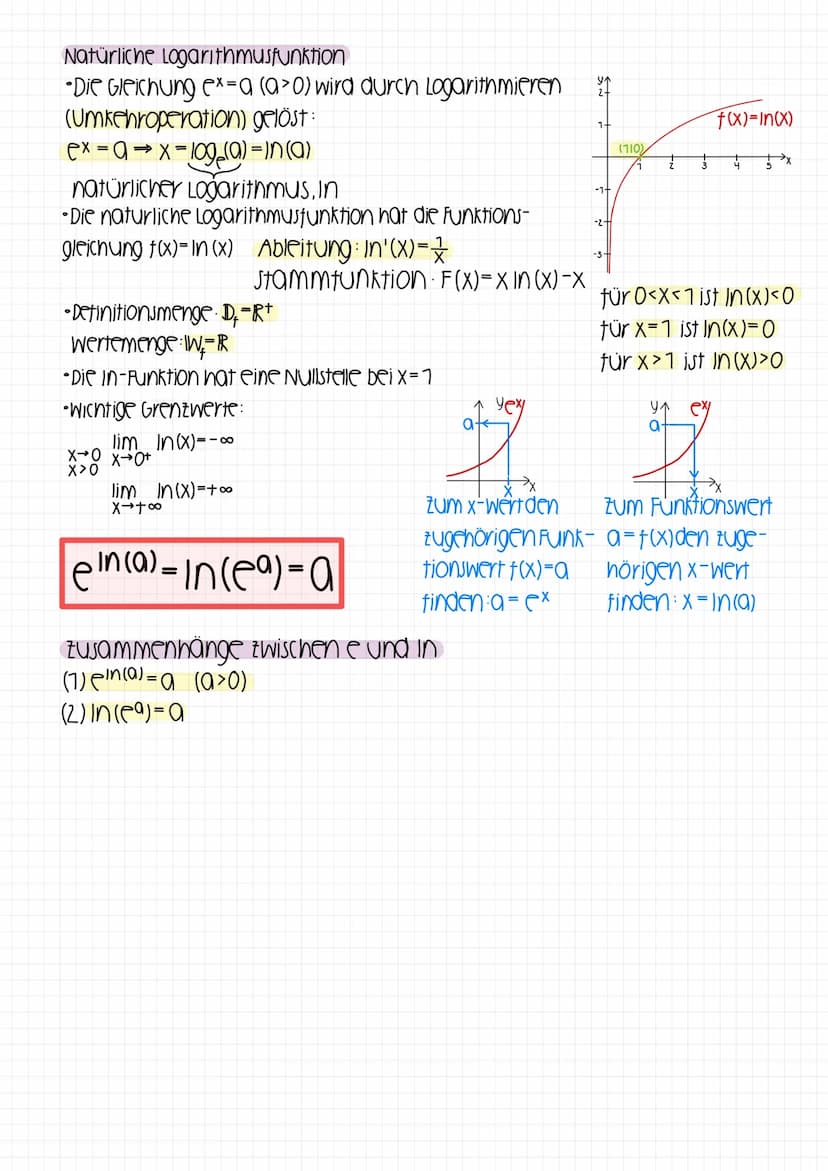 Natürliche Logarithmusfunktion
•Die Gleichung eˣ=a (a>0) wird durch Logarithmieren
(Umkehroperation) gelöst:
eˣ = a ⇒ x = logₑ(a) = ln(a)
natürlicher Logarithmus, ln
•Die natürliche Logarithmusfunktion hat die Funktions-
gleichung f(x)=ln(x) Ableitung: ln'(x)=1/x
Stammfunktion: F(x)=x ln(x)-x
•Definitionsmenge: D_f=R⁺
Wertemenge: W_f=R
•Die ln-Funktion hat eine Nullstelle bei x=1
•Wichtige Grenzwerte:
x→0 x>0 lim x→0⁺ ln(x)=-∞
lim x→+∞ ln(x)=+∞
e^ln(a) = ln(e^a) = a
Zusammenhänge zwischen e und ln
(1) e^ln(a) = a (a>0)
(2) ln(e^a) = a
y
2
1
-1
-2
-3
(1|0)
1 2 3 4 5 x
f(x)=ln(x)
für 0<x<1 ist ln(x)<0
für x=1 ist ln(x)=0
für x>1 ist ln(x)>0
y eˣ
a
x x
zum x-Wert den
zugehörigen Funk-
tionswert f(x)=a
finden: a = eˣ
y eˣ
a
x x
zum Funktionswert
a=f(x) den zuge-
hörigen x-Wert
finden: x = ln(a)